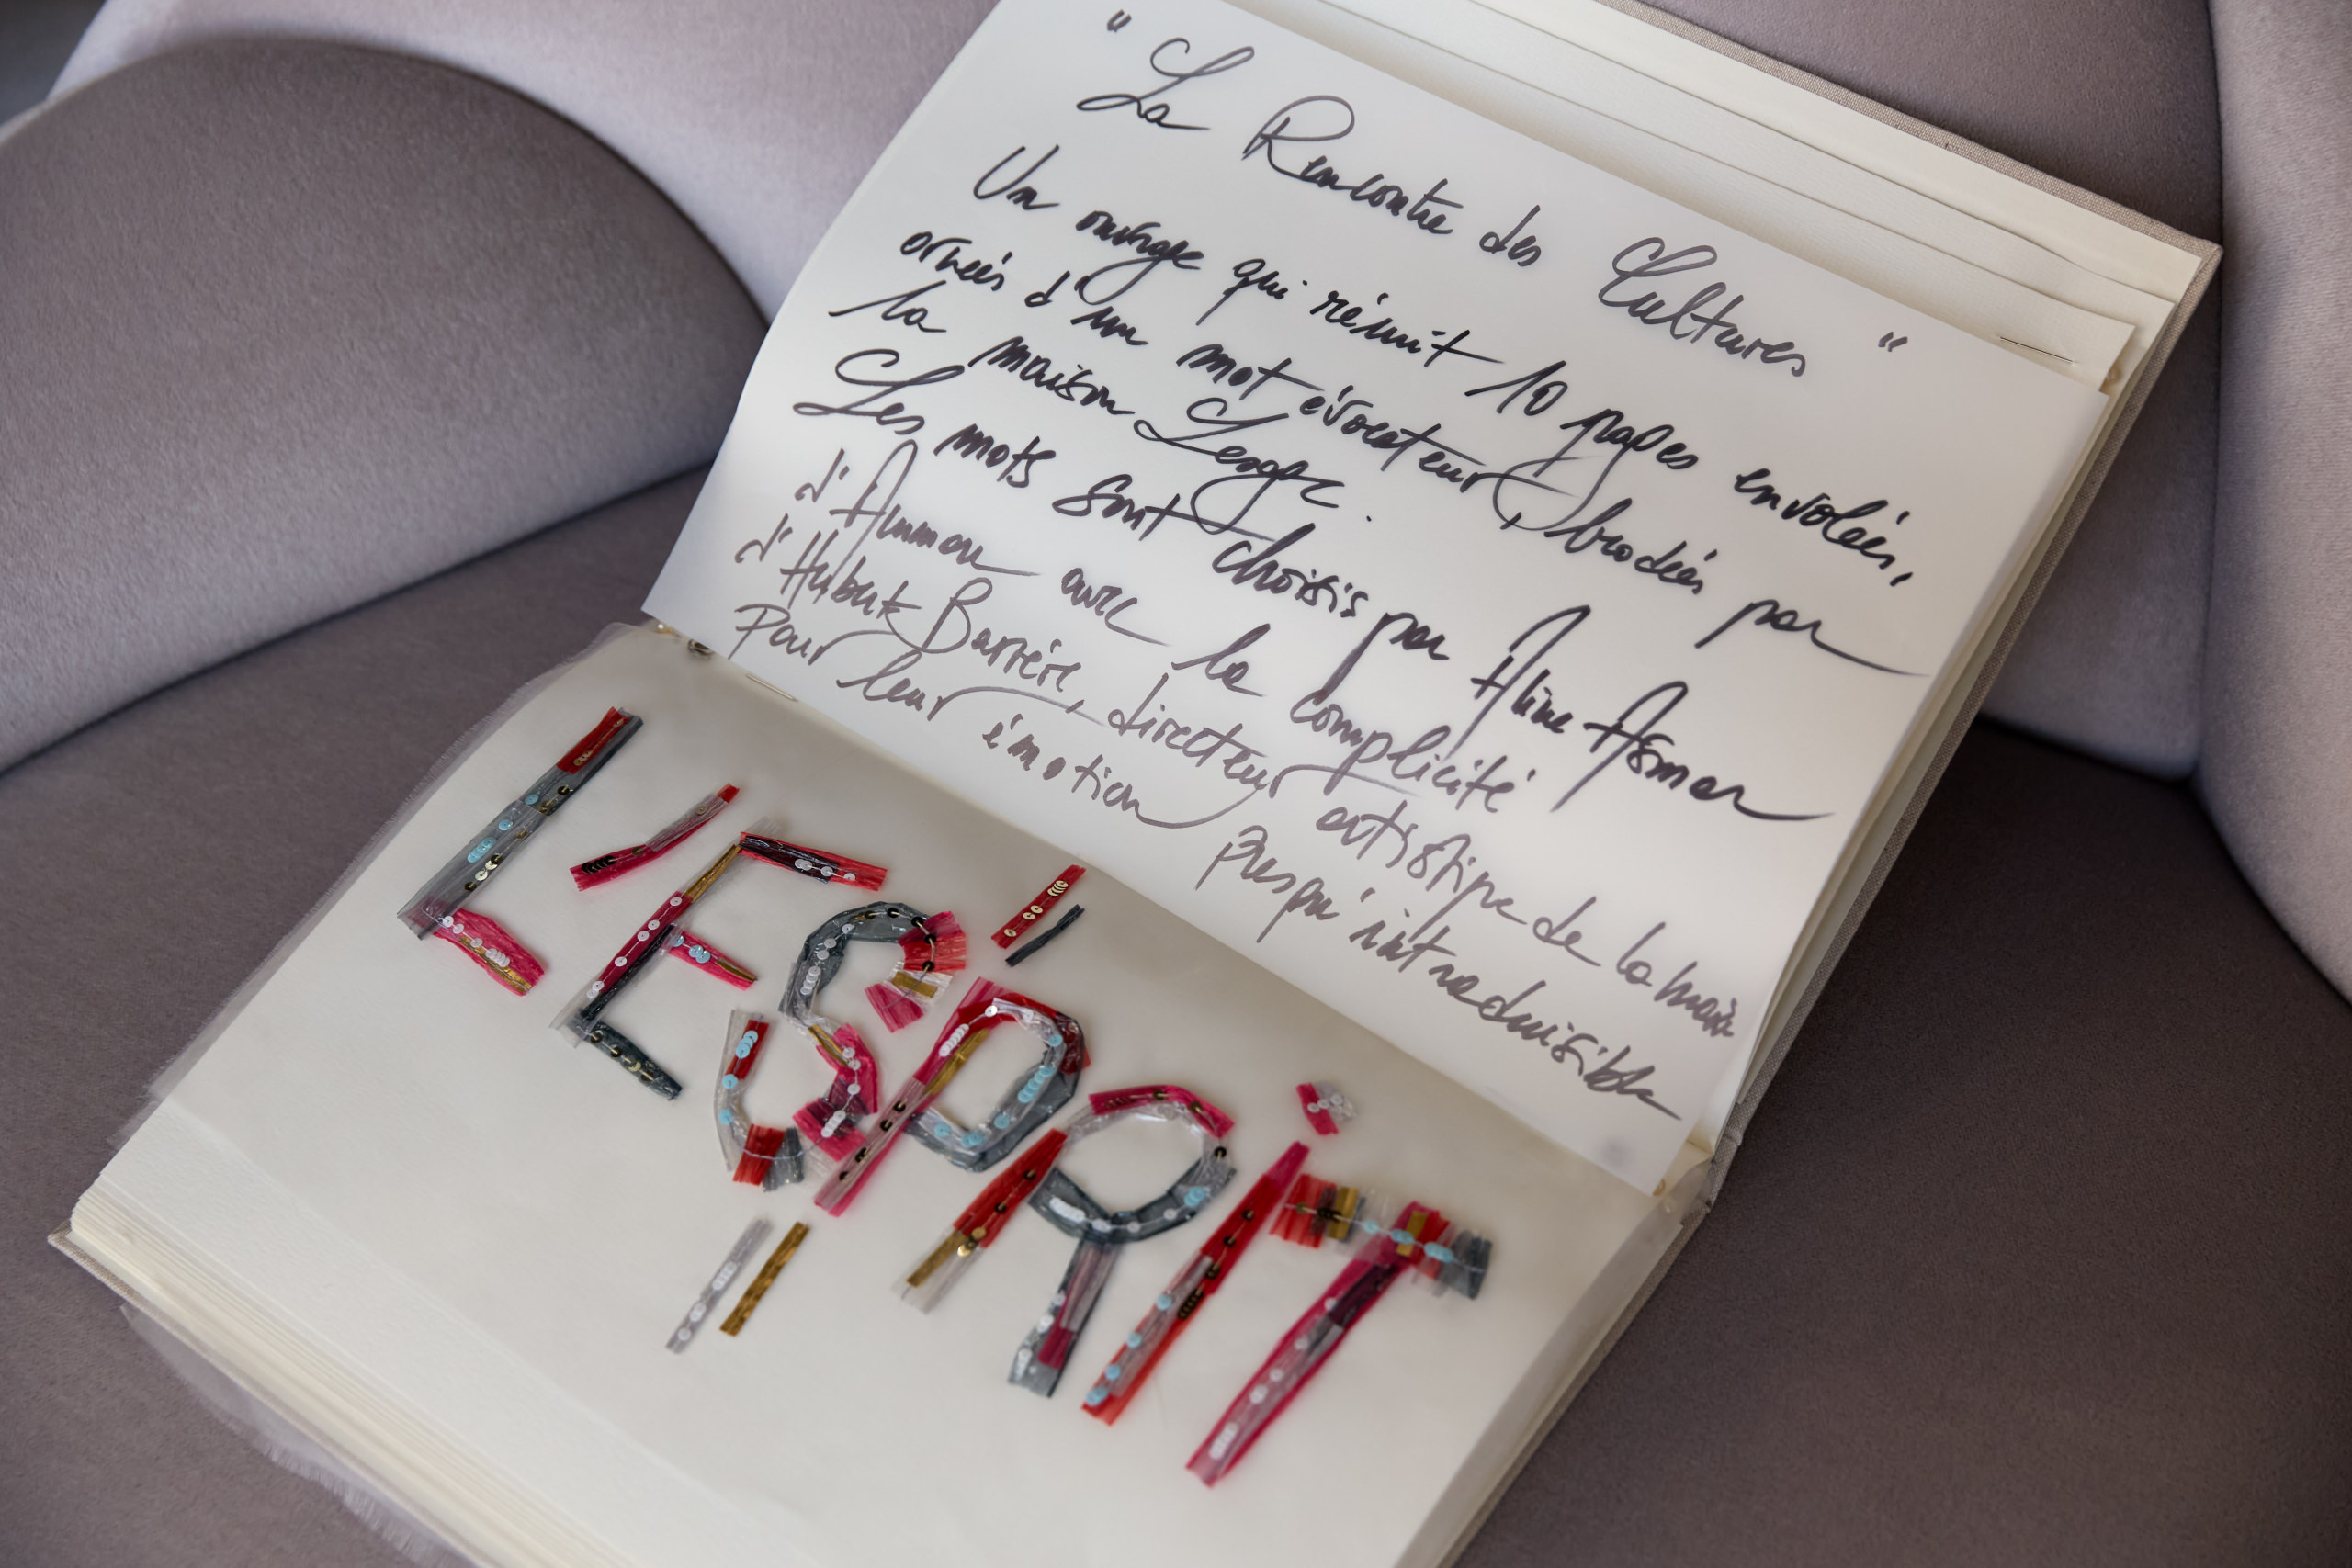 " La Rencontre des Cultures "
Un ouvrage qui réunit 10 pages envolées,
ornées d'un mot évocateur, brodées par
la maison Lesage.
Les mots sont choisis par Aline Asmar
d'Amman avec la complicité
d'Hubert Barrère, directeur artistique de la maison
pour leur émotion presqu'intraduisible
L'ESPRiT